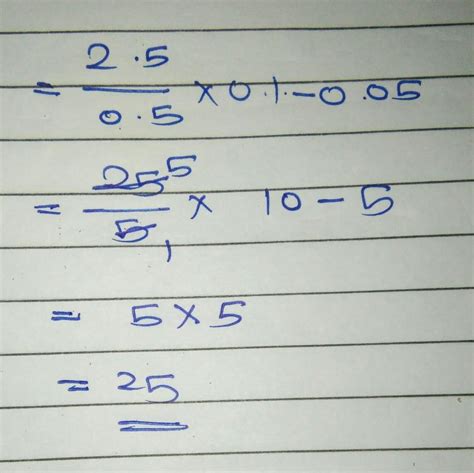 = 2.5/0.5 × 0.1 - 0.05
= 25 5/5 1 × 10 - 5
= 5 × 5
= 25